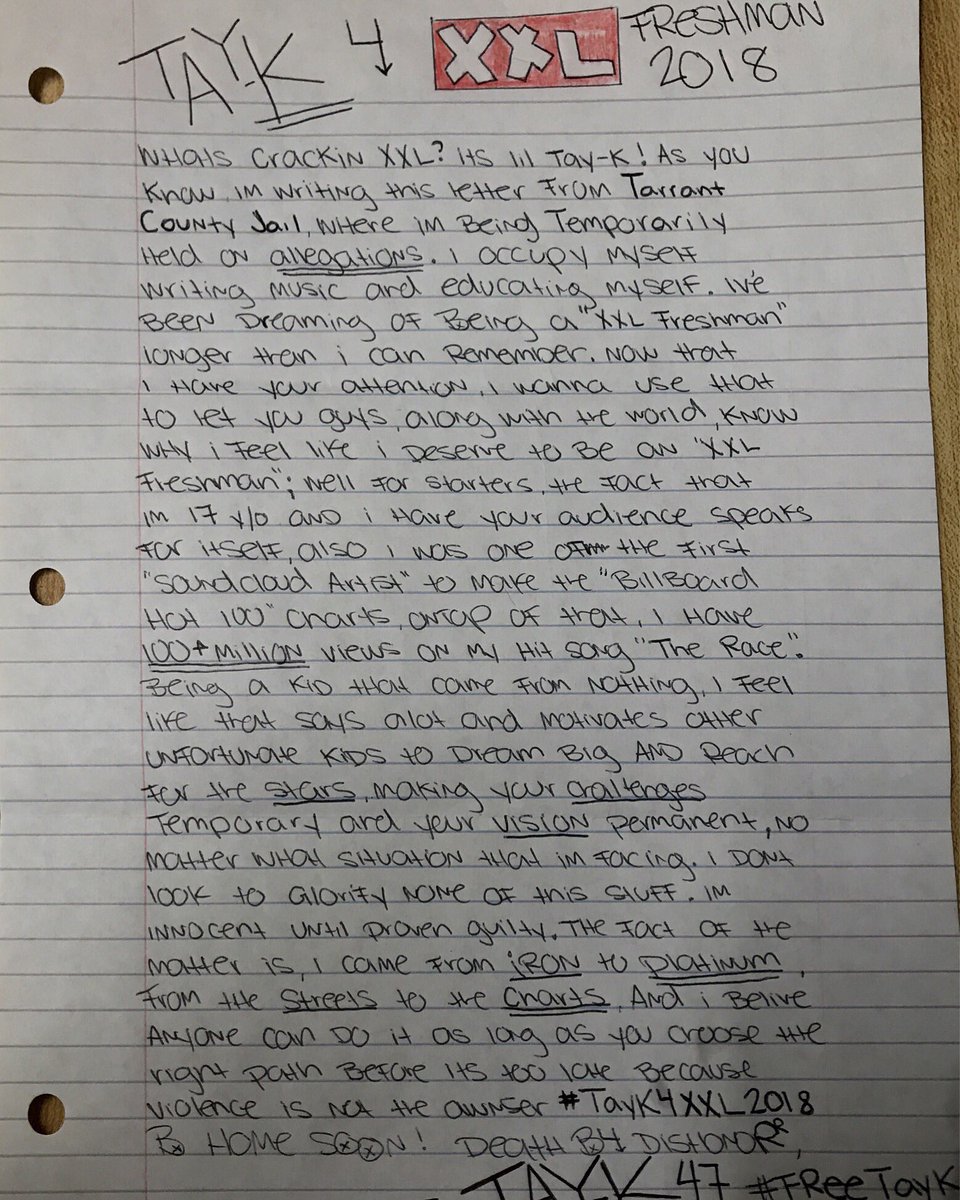 TAY-K 4 XXL FRESHMAN
2018
WHats Crackin XXL? Its lil Tay-K! As you
Know, im writing this letter from Tarrant
County Jail, where im Being Temporarily
Held on allegations. I occupy myself
writing music and educating myself. Iv'e
Been Dreaming of Being a "XXL Freshman"
longer than i can Remember. Now that
I Have your attention, I wanna use that
to let you guys, along with the world, know
why i feel like i deserve to Be an "XXL
Freshman"; well for starters, the fact that
im 17 y/o and i Have your audience speaks
for itself, also I was one of the first
"Soundcloud Artist" to make the "BillBoard
Hot 100" Charts, ontop of that, I Have
100+ Million views on my Hit song "The Race".
Being a Kid that came from Nothing, I feel
like that says alot and motivates other
unfortunate Kids to Dream Big AND Reach
for the stars, making your challenges
Temporary and your vision permanent, No
matter what situation that im facing. I Dont
look to Glorify None of this stuff. Im
innocent until proven guilty. The fact of the
matter is, I came from iRON to platinum,
from the Streets to the Charts, And i Belive
Anyone can do it as long as you choose the
right path Before its too late Because
violence is not the awnser #TayK4XXL2018
B HOME SOON! DEATH B4 DISHONOR,
TAYK 47 #FReeTayK